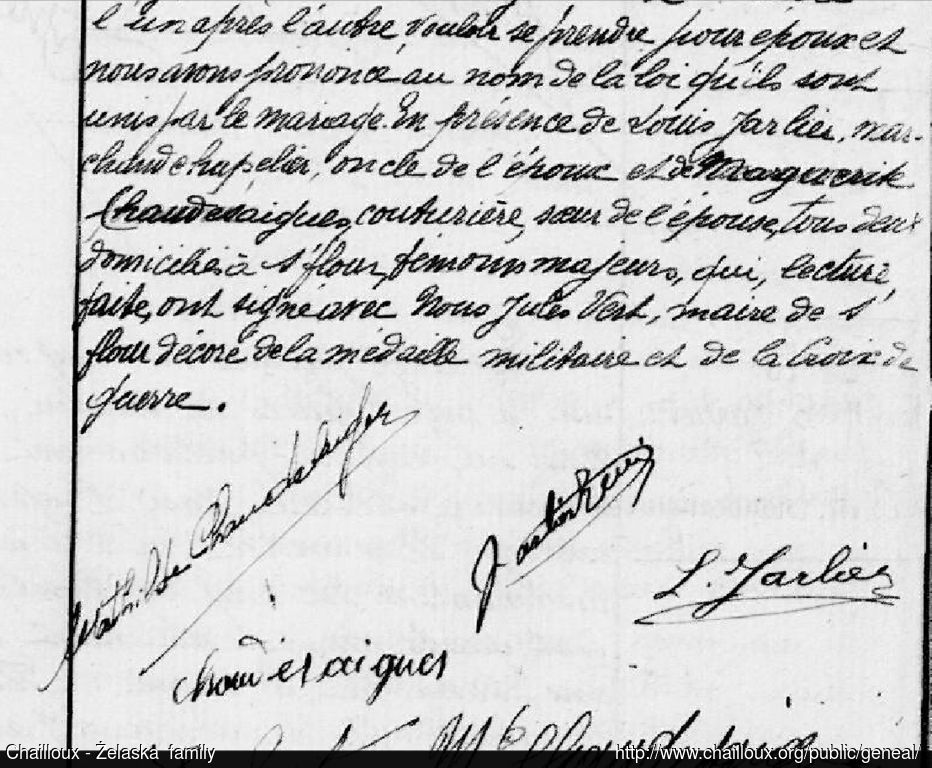 l'un après l'autre vouloir se prendre pour époux et
nous avons prononcé au nom de la loi qu'ils sont
unis par le mariage. En présence de Louis Jarlier, mar-
chand chapelier, oncle de l'époux et de Marguerite
Chaudesaigues, couturière, sœur de l'épouse, tous deux
domiciliés à St flour, témoins majeurs, qui, lecture
faite, ont signé avec Nous Jules Vert, maire de St
flour décoré de la médaille militaire et de la Croix de
guerre.
Chaudesaigues
L. Jarlier
chaudesaigues
Chailloux - Želaskà family
http://www.chailloux.org/public/geneal/